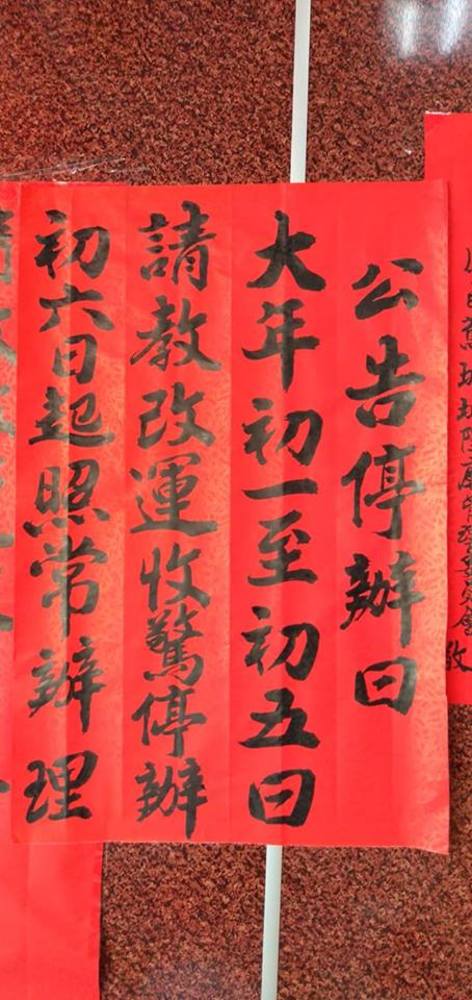 公告停辦日
大年初一至初五日
請教改運收驚停辦
初六日起照常辦理